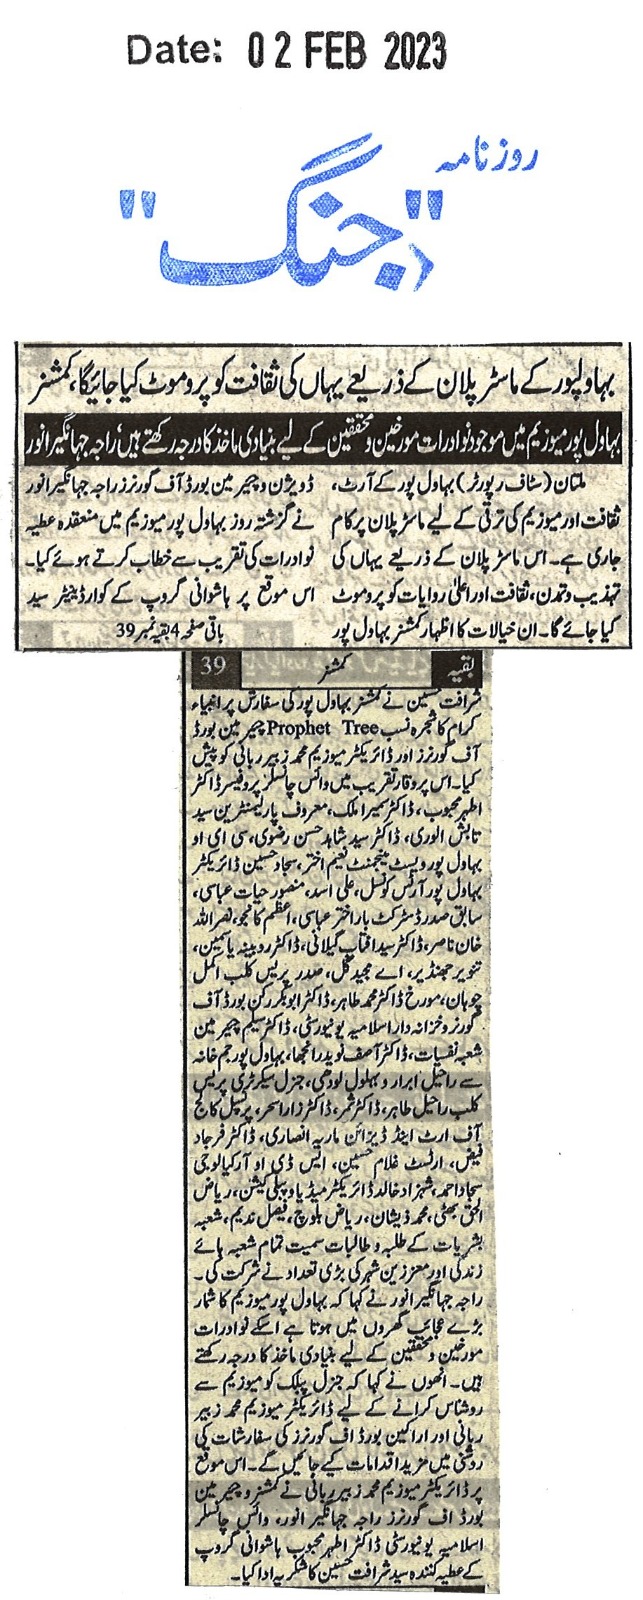 Date: 02 FEB 2023
روزنامہ
"جنگ"
بہاولپور کے ماسٹر پلان کے ذریعے یہاں کی ثقافت کو پروموٹ کیا جائیگا، کمشنر
بہاول پور میوزیم میں موجود نوادرات مورخین و محققین کے لیے بنیادی ماخذ کا درجہ رکھتے ہیں، راجہ جہانگیر انور
ملتان (سٹاف رپورٹر) بہاول پور کے آرٹ،
ثقافت اور میوزیم کی ترقی کے لیے ماسٹر پلان پر کام
جاری ہے۔ اس ماسٹر پلان کے ذریعے یہاں کی
تہذیب و تمدن، ثقافت اور اعلیٰ روایات کو پروموٹ
کیا جائے گا۔ ان خیالات کا اظہار کمشنر بہاول پور
ڈویژن و چیرمین بورڈ آف گورنرز راجہ جہانگیر انور
نے گزشتہ روز بہاول پور میوزیم میں منعقدہ عطیہ
نوادرات کی تقریب سے خطاب کرتے ہوئے کیا۔
اس موقع پر ہاشوانی گروپ کے کوارڈینیٹر سید
باقی صفحہ 4 بقیہ نمبر 39
بقیہ کمشنر 39
شرافت حسین نے کمشنر بہاول پور کی سفارش پر انبیاء
کرام کا شجرہ نسب Prophet Tree چیرمین بورڈ
آف گورنرز اور ڈائریکٹر میوزیم محمد زبیر ربانی کو پیش
کیا۔ اس پروقار تقریب میں وائس چانسلر پروفیسر ڈاکٹر
اطہر محبوب، ڈاکٹر سمیرا ملک، معروف پارلیمنٹرین سید
تابش الوری، ڈاکٹر سید شاہد حسن رضوی، سی ای او
بہاول پور ویسٹ مینجمنٹ نعیم اختر، سجاد حسین ڈائریکٹر
بہاول پور آرٹس کونسل، علی اسد، منصور حیات عباسی،
سابق صدر ڈسٹرکٹ بار اختر عباسی، اعظم کانجو، نصر اللہ
خان ناصر، ڈاکٹر سید افتاب گیلانی، ڈاکٹر روبینہ یاسمین،
تنویر جھنڈیر، اے مجید گل، صدر پریس کلب اکمل
چوہان، مورخ ڈاکٹر محمد طاہر، ڈاکٹر ابوبکر رکن بورڈ آف
گورنر و خزانہ دار اسلامیہ یونیورسٹی، ڈاکٹر سلیم چیرمین
شعبہ نفسیات، ڈاکٹر آصف نوید رانجھا، بہاول پور جم خانہ
سے راحیل ابرار و بہلول لودھی، جنرل سیکرٹری پریس
کلب راحیل طاہر، ڈاکٹر ثمر، ڈاکٹر زارا سحر، پرنسپل کالج
آف ارٹ اینڈ ڈیزائن ماریہ انصاری، ڈاکٹر فرجاد
فیض، ارٹسٹ غلام حسین، ایس ڈی او آرکیالوجی
سجاد احمد، شہزاد خالد ڈائریکٹر میڈیا و پبلی کیشن، ریاض
الحق بھٹی، محمد ذیشان، ریاض بلوچ، فیصل ندیم، شعبہ
بشریات کے طلبہ و طالبات سمیت تمام شعبہ ہائے
زندگی اور معززین شہر کی بڑی تعداد نے شرکت کی۔
راجہ جہانگیر انور نے کہا کہ بہاول پور میوزیم کا شمار
بڑے عجائب گھروں میں ہوتا ہے اسکے نوادرات
مورخین و محققین کے لیے بنیادی ماخذ کا درجہ رکھتے
ہیں۔ انھوں نے کہا کہ جنرل پبلک کو میوزیم سے
روشناس کرانے کے لیے ڈائریکٹر میوزیم محمد زبیر
ربانی اور اراکین بورڈ اف گورنرز کی سفارشات کی
روشنی میں مزید اقدامات کیے جائیں گے۔ اس موقع
پر ڈائریکٹر میوزیم محمد زبیر ربانی نے کمشنر و چیرمین
بورڈ اف گورنرز راجہ جہانگیر انور، وائس چانسلر
اسلامیہ یونیورسٹی ڈاکٹر اطہر محبوب ہاشوانی گروپ
کے عطیہ کنندہ سید شرافت حسین کا شکریہ ادا کیا۔